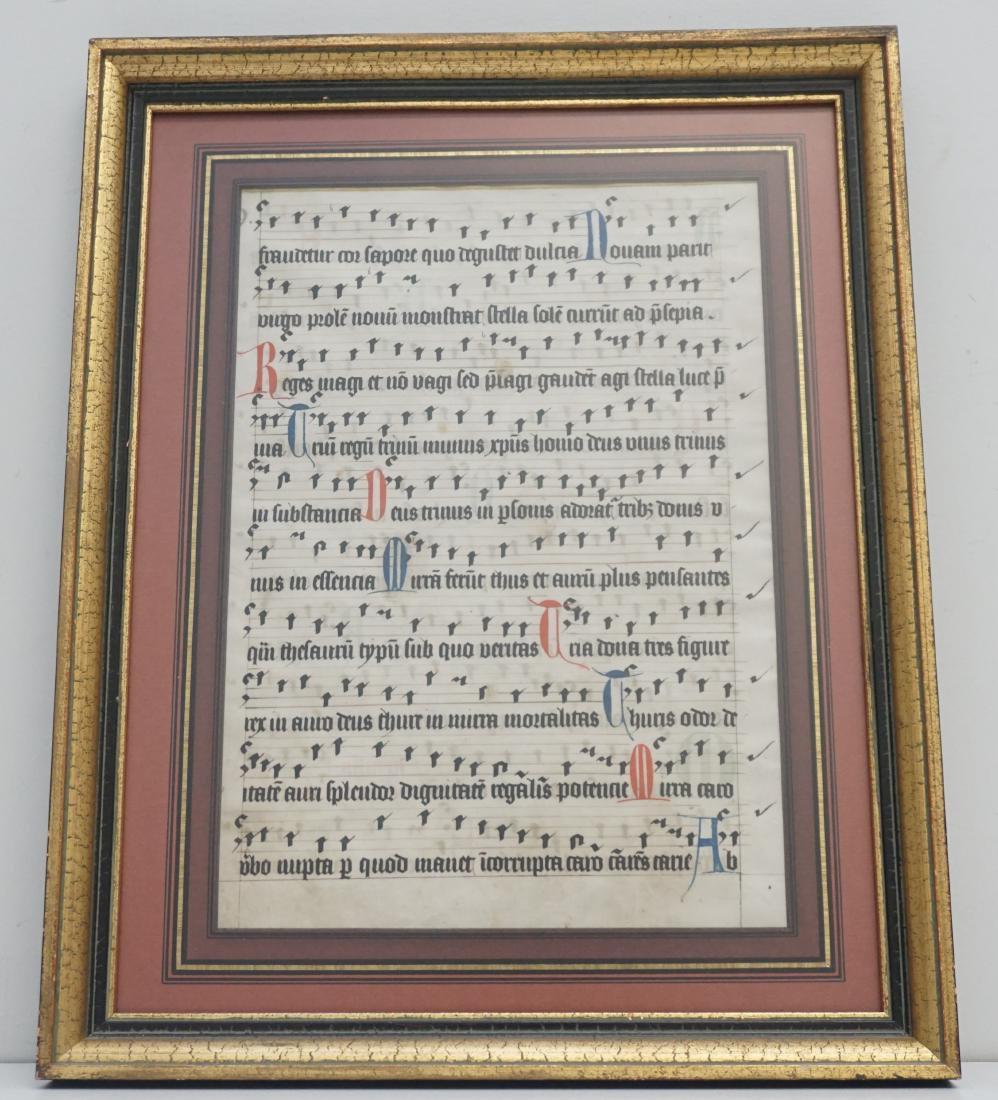 fraudetur cor sapore quo degustet dulcia Nouam parit
uirgo prolē nouū monstrat stella solē currūt ad p̄sepia .
Reges magi et nō vagi sed p̄sagi gaudēt agi stella luce p̄
uia Triū regū trinū munus xp̄us homo deus vnus trinus
in substancia Deus trinus in p̱sonis adorat᷑ tribꝫ donis v
nus in essencia Mirrā ferūt thus et aurū plus pensantes
qm̄ thesaurū typū sub quo veritas Tria dona tres figure
rex in auro deus thure in mirra mortalitas Thuris odor de
itatē auri splendor dignitatē regal̄is potencie Mirra caro
v̄bo nupta ꝑ quod manet īcorrupta caro carēs carie Ab